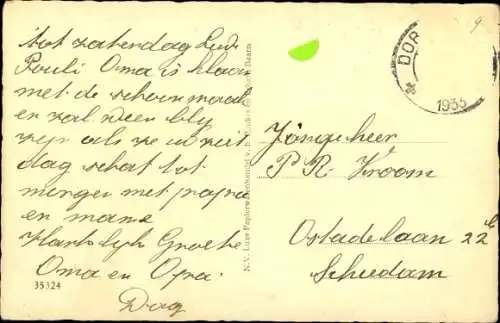 tot zaterdag Lieve
Pauli Oma is klaar
met de schoonmaak
en zal weer bly
zyn als ze u ziet
dag schat tot
morgen met papa
en mama
Hartelyk Groete
Oma en Opa.
Dag
35124
N.V. Luxe Papierwarenhandel v.h.
DOR
1935
9
Jongeheer
P R Kroom
Ostadelaan 22 b
Schiedam